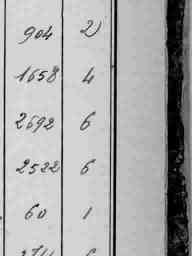 904 2)
1658 4
2692 6
2522 6
60 1